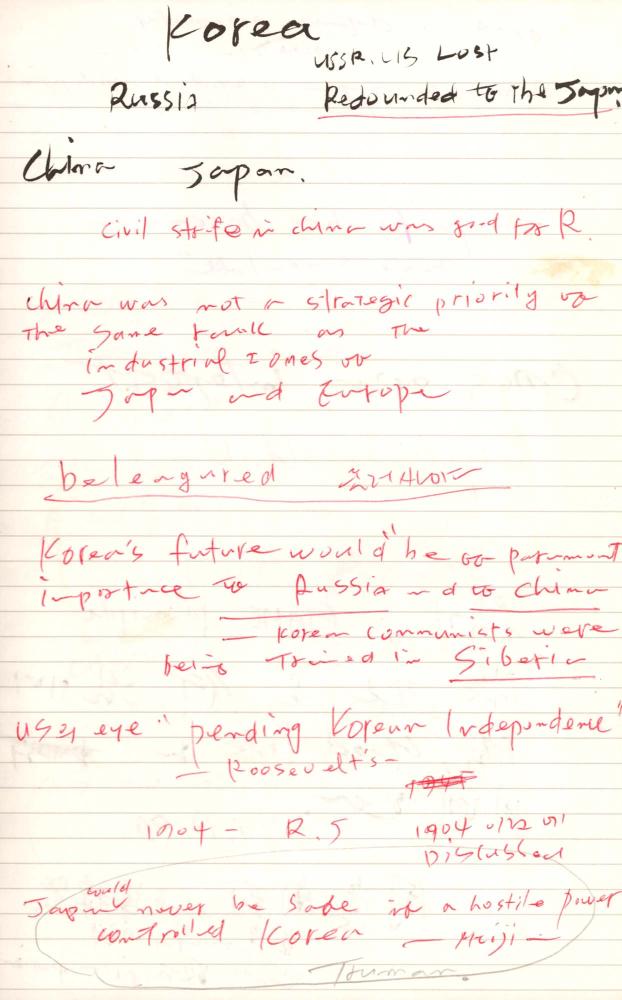 Korea
USSR. US Lost
Russia Redounded to the Japan
China Japan.
civil strife in china was good for R.
china was not a strategic priority of
the same rank as the
industrial zones of
Japan and Europe
beleagured
Korea's future would "be of paramount
importance to Russia and to China
— Korean communists were
being trained in Siberia
US의 eye "pending Korean Independence"
— Roosevelt's —
1904 — R. J 1904
Discussed
would
Japan never be safe if a hostile power
controlled Korea — Meiji —
Truman.